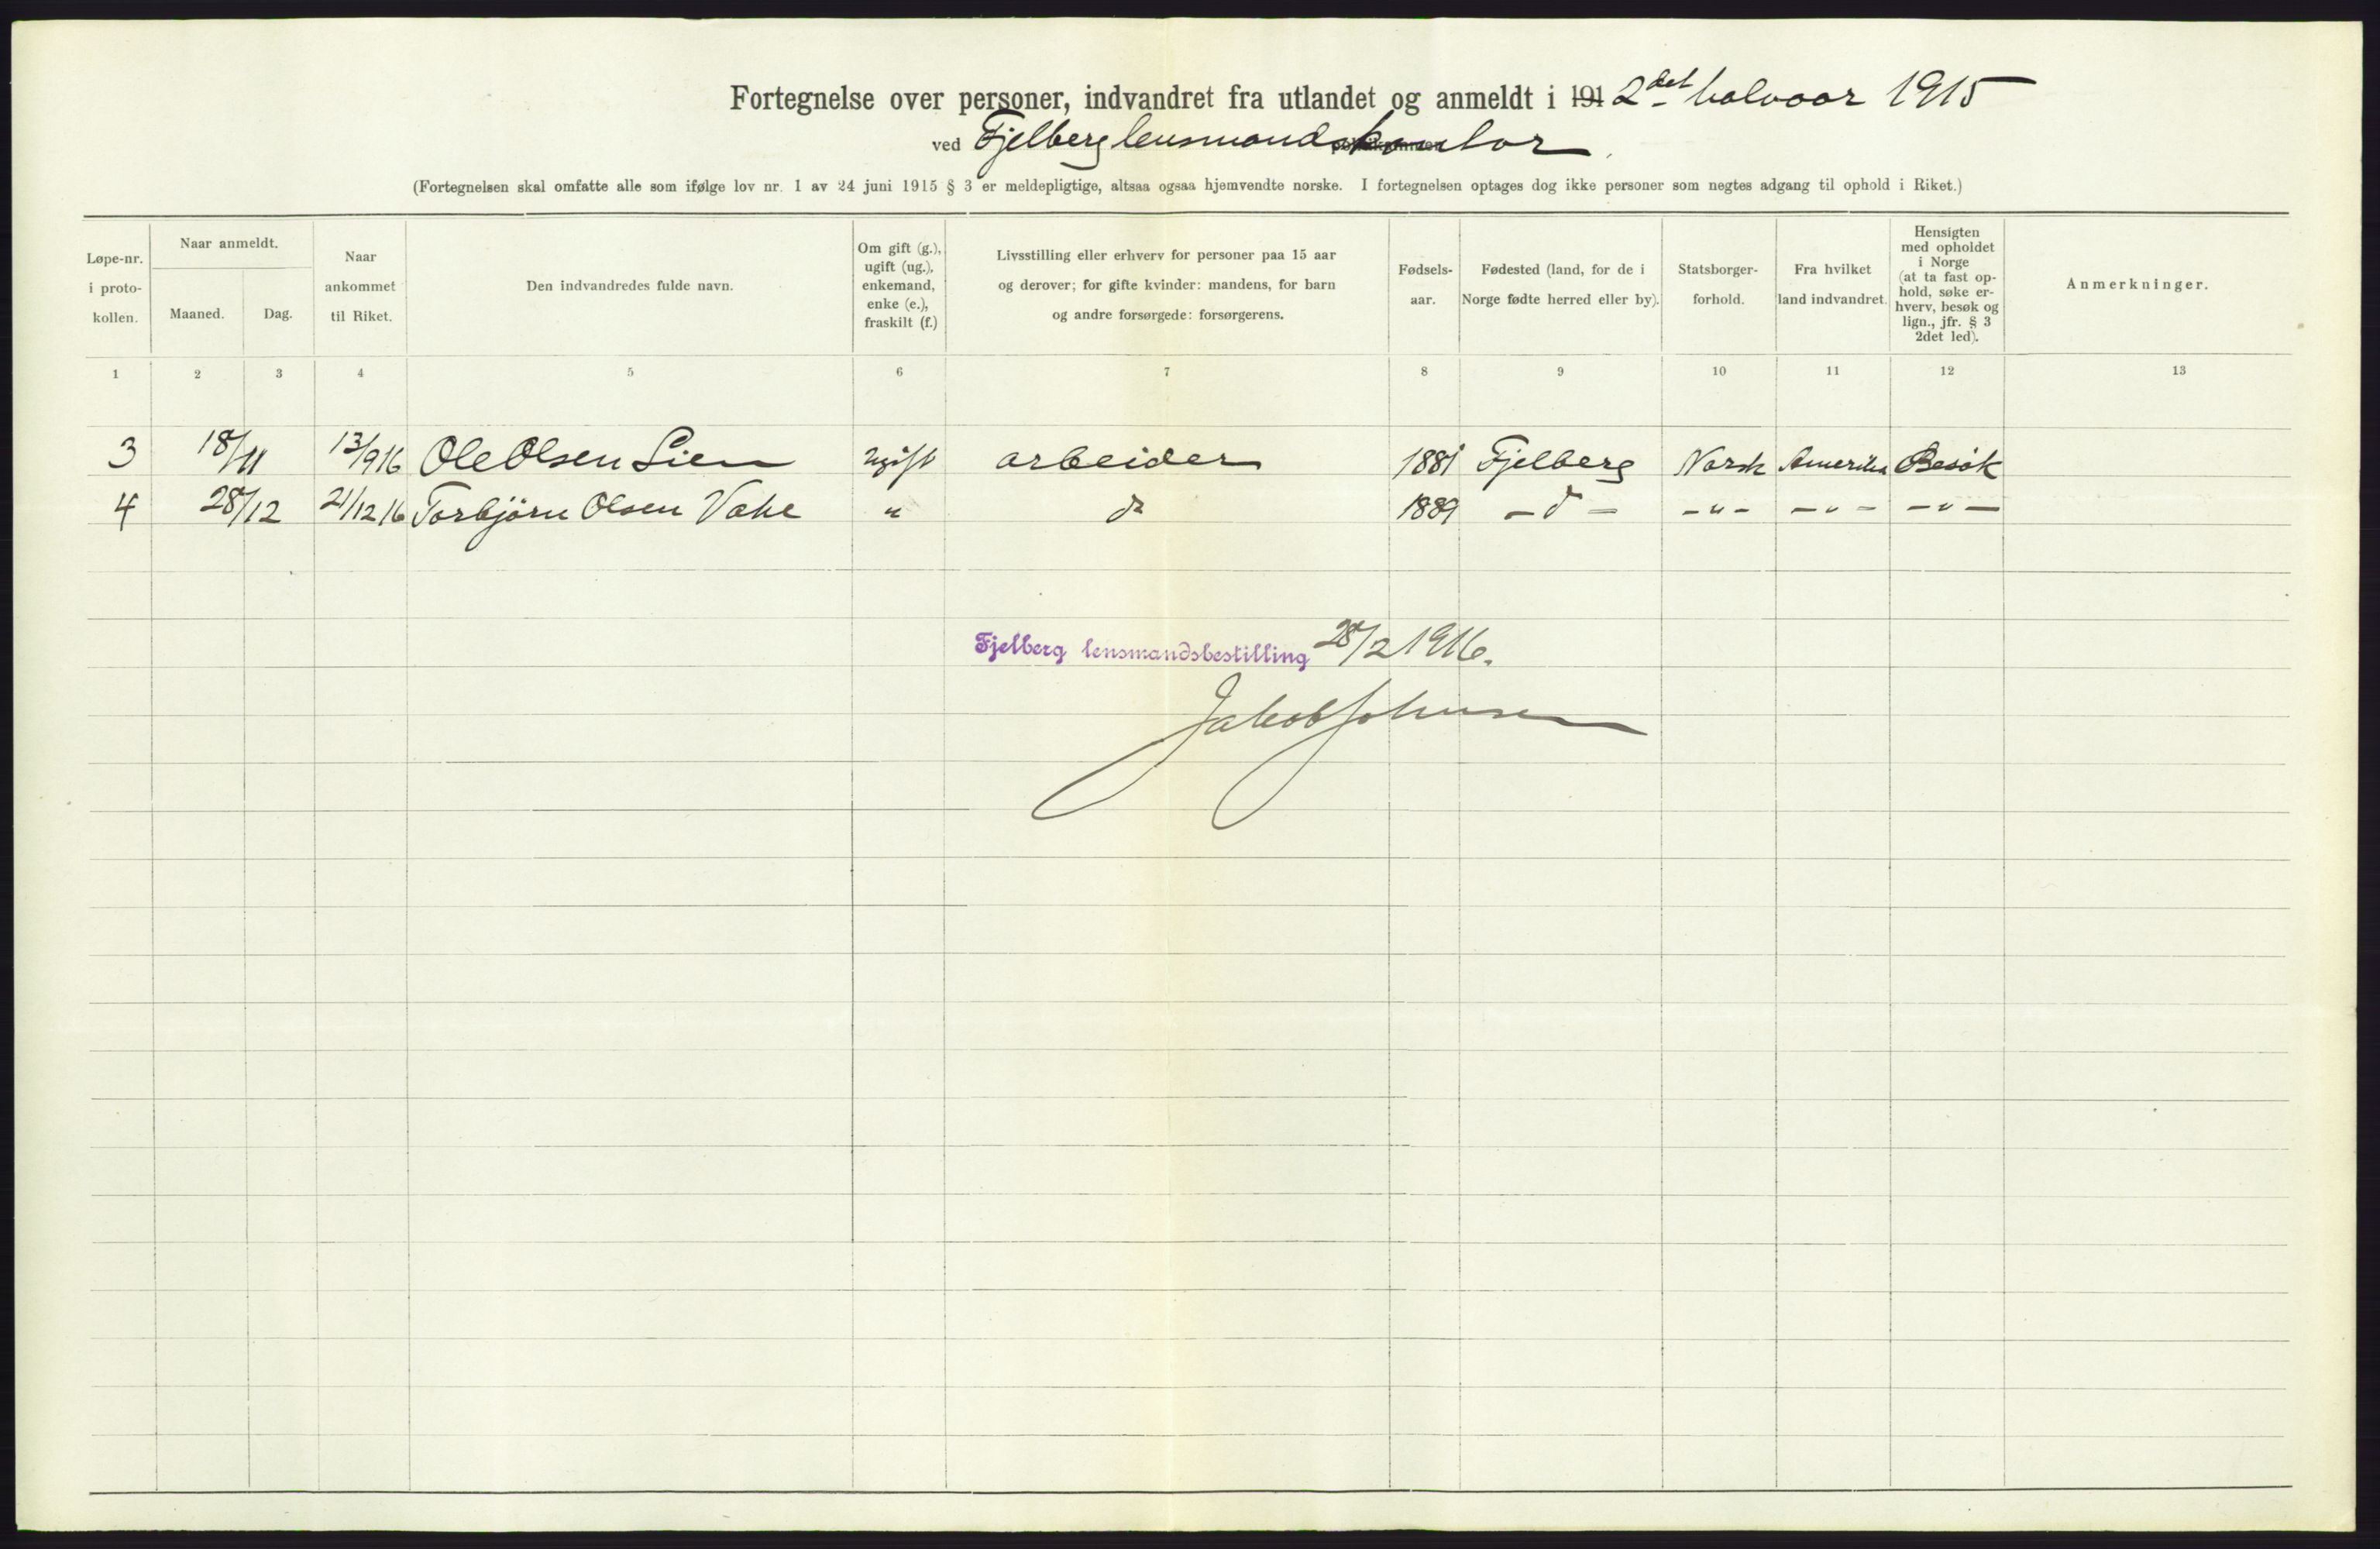 Fortegnelse over personer, indvandret fra utlandet og anmeldt i 191 2det halvaar 1915
ved Fjelberg lensmandskontor
(Fortegnelsen skal omfatte alle som ifølge lov nr. 1 av 24 juni 1915 § 3 er meldepligtige, altsaa ogsaa hjemvendte norske. I fortegnelsen optages dog ikke personer som negtes adgang til ophold i Riket.)
Løpe-nr.
i proto-
kollen.
Naar anmeldt.
Maaned.
Dag.
Naar
ankommet
til Riket.
Den indvandredes fulde navn.
Om gift (g.),
ugift (ug.),
enkemand,
enke (e.),
fraskilt (f.)
Livsstilling eller erhverv for personer paa 15 aar
og derover; for gifte kvinder: mandens, for barn
og andre forsørgede: forsørgerens.
Fødsels-
aar.
Fødested (land, for de i
Norge fødte herred eller by).
Statsborger-
forhold.
Fra hvilket
land indvandret.
Hensigten
med opholdet
i Norge
(at ta fast op-
hold, søke er-
hverv, besøk og
lign., jfr. § 3
2det led).
Anmerkninger.
1 2 3 4 5 6 7 8 9 10 11 12 13
3 18/11 13/9 16 Ole Olsen Lien ugift arbeider 1881 Fjelberg Norsk Amerika Besøk
4 28/12 21/12 16 Torbjørn Olsen Vake " do 1889 - d - - " - - " - - " -
Fjelberg lensmandsbestilling 28/2 1916.
Jakob Johnsen